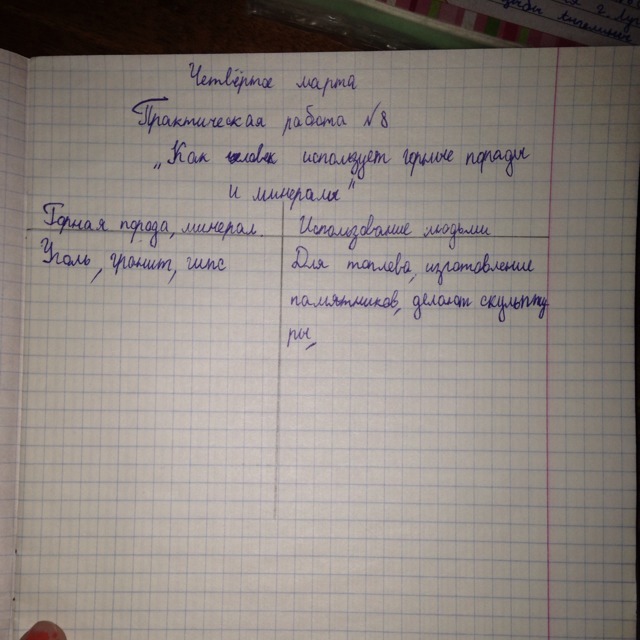 Четвёртое марта
Практическая работа №8
„Как человек использует горные породы
и минералы"
Горная порода, минерал.
Использование людьми
Уголь, гранит, гипс
Для топлева, изготовление
памятников, делают скульпту
ры,